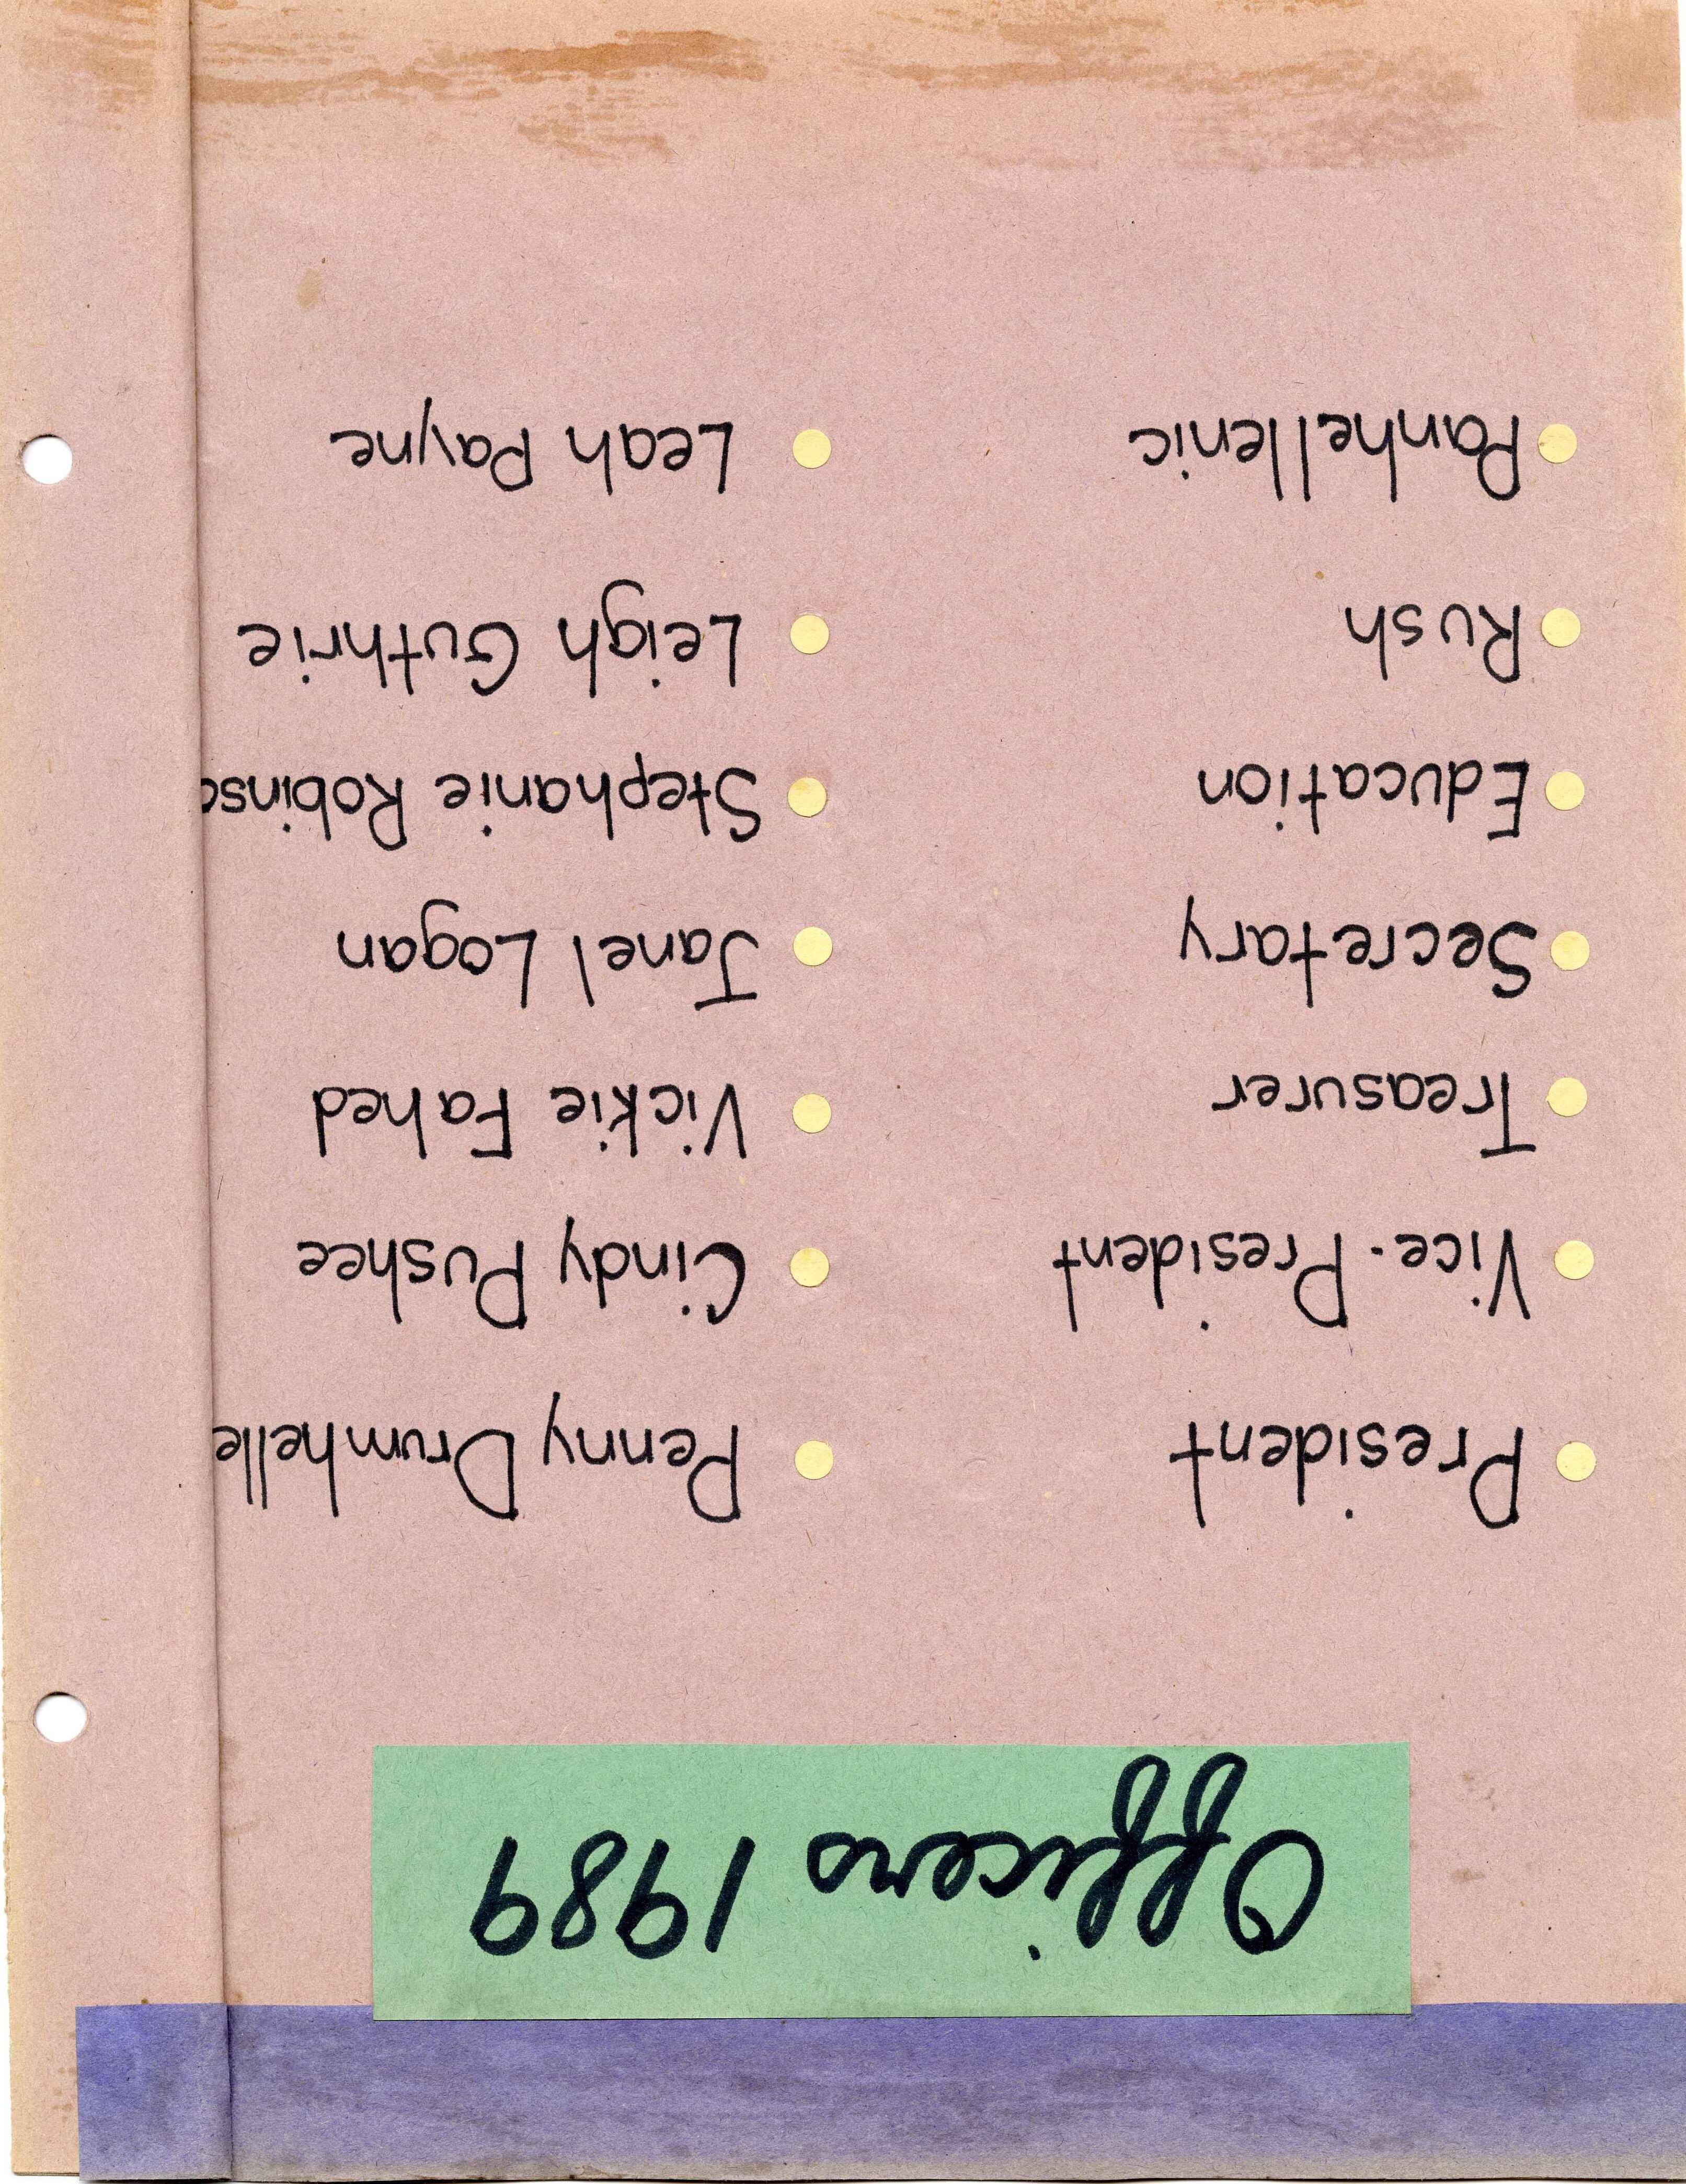 Officers 1989
President Penny Drumhelle
Vice-President Cindy Pushee
Treasurer Vickie Fahed
Secretary Janel Logan
Education Stephanie Robinso
Rush Leigh Guthrie
Panhellenic Leah Payne